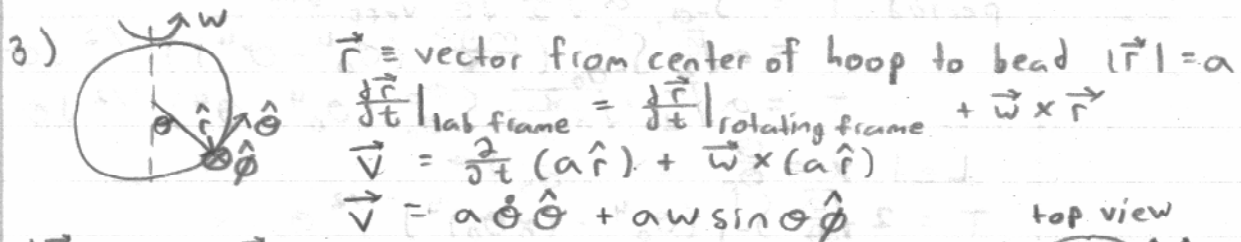 3)
w
θ r̂ θ̂
φ̂
r⃗ ≡ vector from center of hoop to bead |r⃗| = a
dr⃗/dt|lab frame = dr⃗/dt|rotating frame + w⃗ × r⃗
v⃗ = ∂/∂t (a r̂) + w⃗ × (a r̂)
v⃗ = a θ̇ θ̂ + a w sin θ φ̂
top view